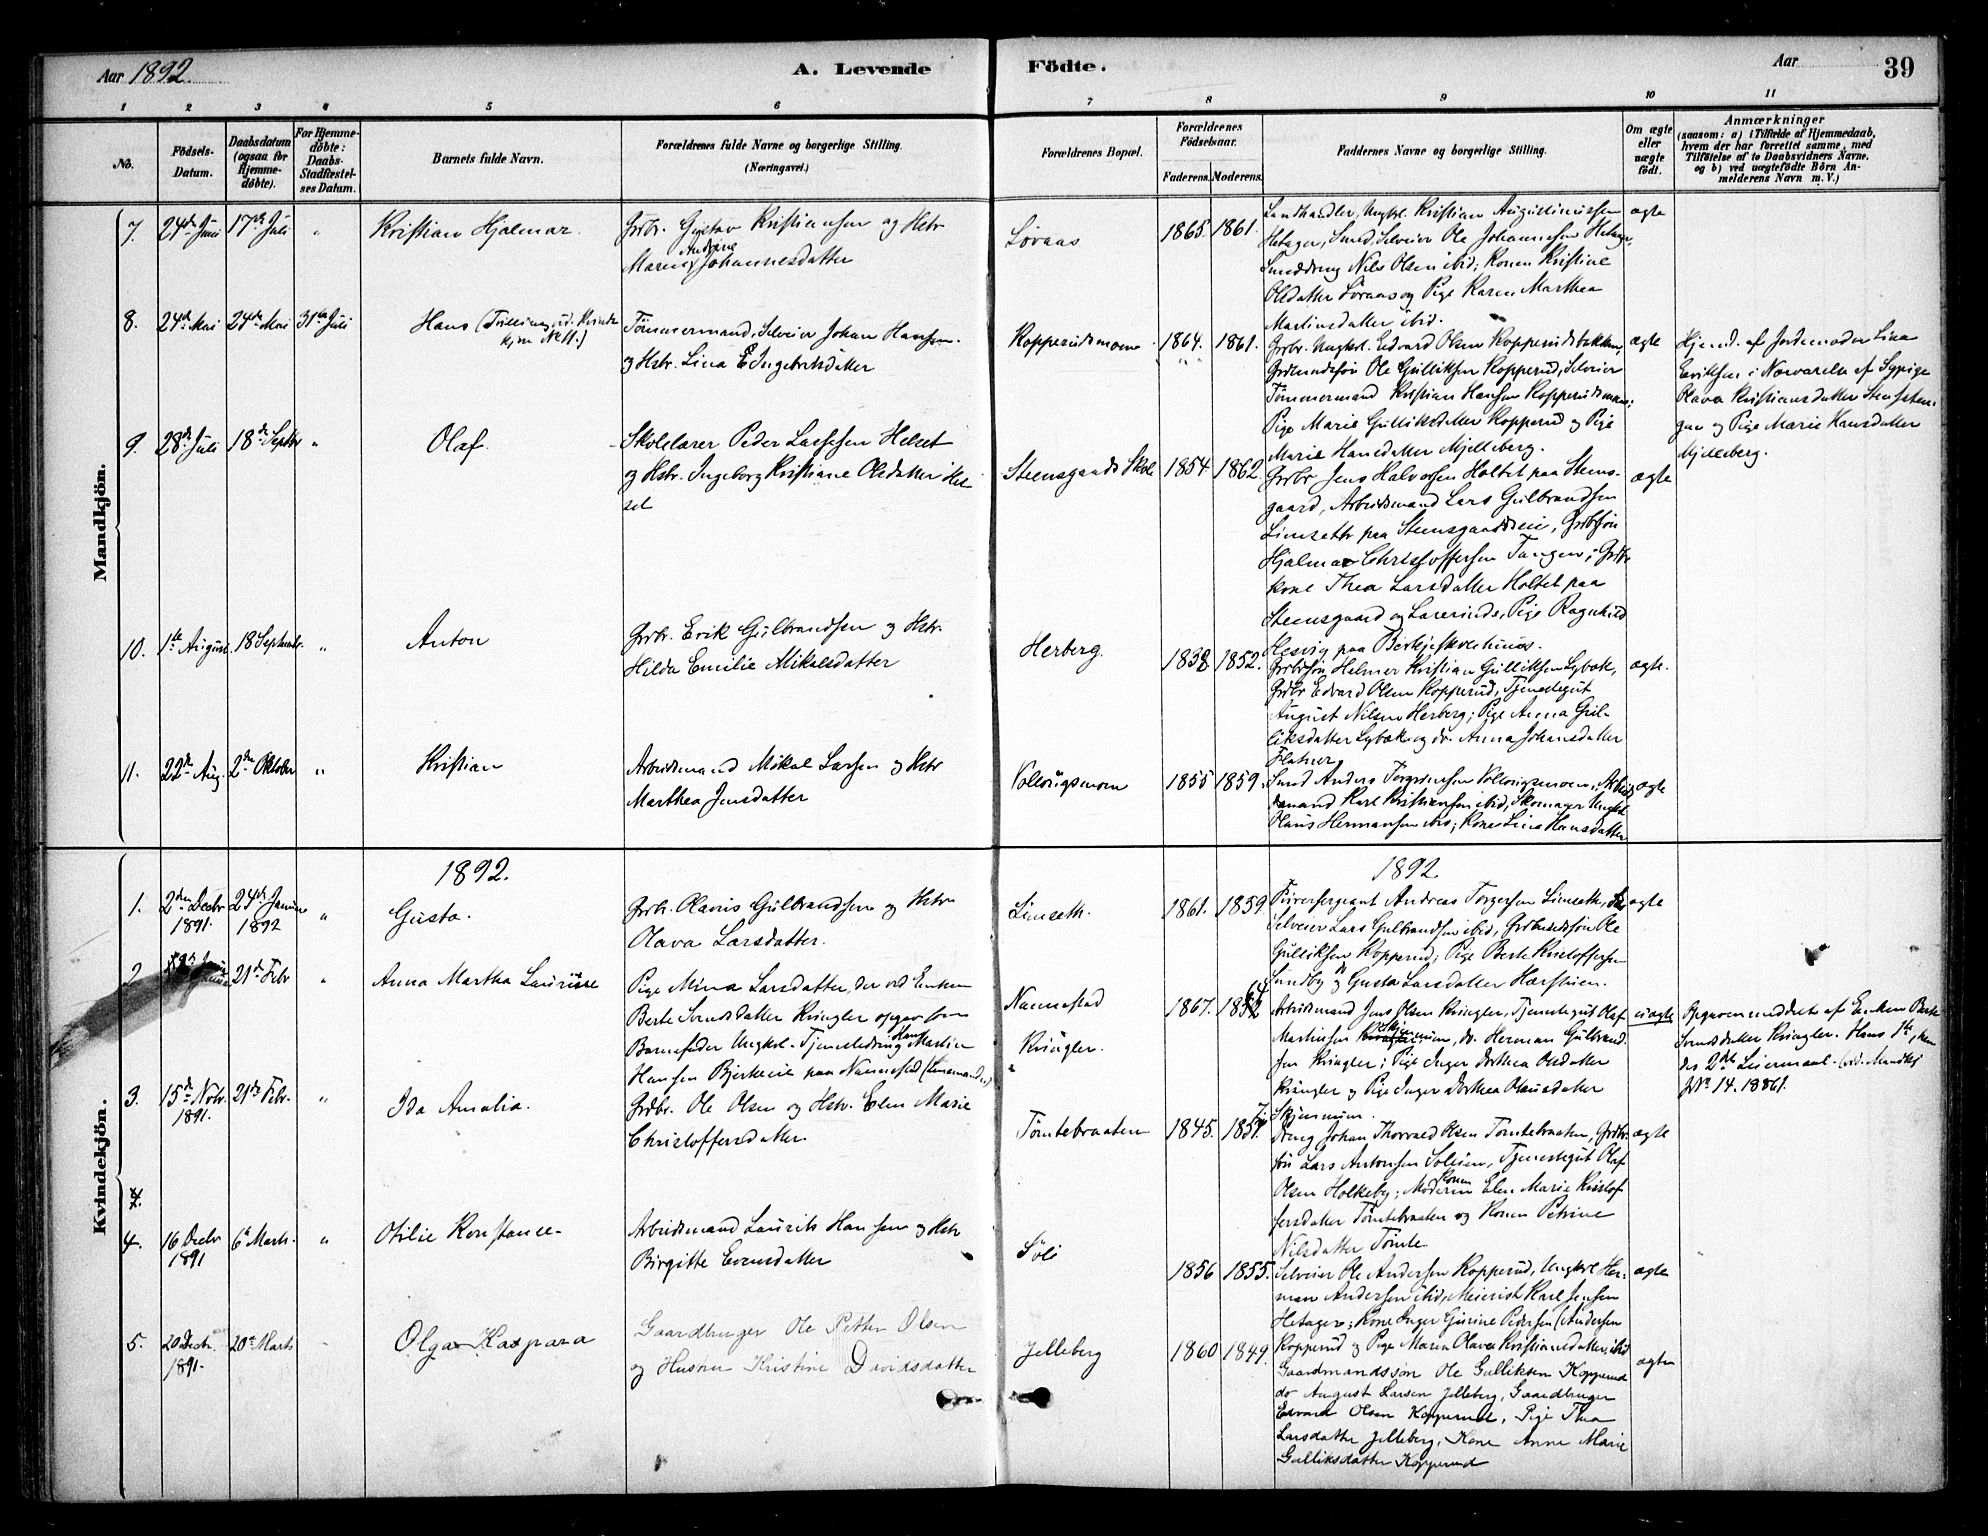 Aar 1892.
A. Levende
Födte.
Aar
39
1
2
3
4
5
6
7
8
9
10
11
No.
Födsels-
Datum.
Daabsdatum
(ogsaa for
Hjemme-
döbte).
For Hjemme-
döbte:
Daabs-
Stadfæstel-
ses Datum.
Barnets fulde Navn.
Forældrenes fulde Navne og borgerlige Stilling.
(Næringsvei.)
Forældrenes Bopæl.
Forældrenes
Födselsaar.
Faderens.
Moderens.
Faddernes Navne og borgerlige Stilling.
Om ægte
eller
uægte
födt.
Anmærkninger
(saasom: a) i Tilfælde af Hjemmedaab,
hvem der har forrettet samme, med
Tilföielse af to Daabsvidners Navne.
og b) ved uægtefödte Börn An-
melderens Navn m. V.)
Mandkjön.
7.
24de Juni
17de Juli
"
Kristian Hjalmar.
Grdbr. Gustav Kristiansen og Hstr
Andrine
Maren Johannesdatter
Løraas
1865.
1861.
Landhandler, Ungkrl. Kristian Augustinussen
Hetager, Smed, Selveier Ole Johannesen Hetager,
Smeddreng Nils Olsen ibid; Konen Kristine
Olsdatter Løraas og Pige Karen Marthea
Martinsdatter ibid.
ægte
8.
24de Mai
24de Mai
31te Juli
Hans (Tvilling, vid. Kvinde-
kjøn No 11.)
Tømmermand, Selveier Johan Hansen
og Hstr. Lina E. Ingebretsdatter
Kopperudsmoen
1864.
1861.
Grdbr. Ungkrl. Edvard Olsen Kopperudsbakken,
Grdmandssøn Ole Gulliksen Kopperud, Selveier
Tømmermand Kristian Hansen Kopperudsmoen;
Pige Marie Gulliksdatter Kopperud og Pige
Marie Hansdatter Mjelleberg.
ægte
Hjemd. af Jordemoder Lina
Eriksen i Nærværelse af Sypige
Olava Kristiansdatter Stenssten-
gen og Pige Marie Hansdatter
Mjelleberg.
9.
28de Juli
18de Septbr
"
Olaf.
Skolelærer Peder Larsen Helset
og Hstr. Ingeborg Kristiane Olsdatter Hel-
set
Steensgaards Skole
1854.
1862.
Grdbr Jens Halvorsen Holtet paa Steens-
gaard, Arbeidsmand Lars Gulbrandsen
Limseth paa Steensgaardseie, Grdbrsøn
Hjalmar Christoffersen Tangen; Grdbr
kone Thea Larsdatter Holtet paa
Steensgaard og Lærerinde, Pige Ragnhild
Hesvig paa Berkjeskolehuus.
ægte
10.
1te August
18 Septembr.
"
Anton
Grdbr. Erik Gulbrandsen og Hstr.
Hilda Emilie Mikalsdatter
Herberg.
1838
1852.
Grdbrsøn Helmer Kristian Gulliksen Lybæk,
Grdbr Edvard Olsen Kopperud, Tjenestegut
August Nilsen Herberg; Pige Anna Gul-
liksdatter Lybæk og do. Anna Johansdatter
Flatner
ægte.
11.
22de Aug.
2den Oktober
"
Kristian
Arbeidsmand Mikal Larsen og Hstr
Marthea Jensdatter
Vollaugsmoen
1855
1859.
Smed Anders Torgersen Vollaugsmoen, Arbeids-
mand Karl Kristiansen ibid, Skomager Ungkrl
Olaus Hermansen Aas; Kone Lina Hansdatter
ægte
1892.
1892.
Kvindekjön.
1.
2den Decbr
1891.
24de Januar
1892
"
Gusta.
Grdbr. Olaus Gulbrandsen og Hstr
Olava Larsdatter.
Limseth.
1861.
1859.
Furersergeant Andreas Torgersen Limseth,
Selveier Lars Gulbrandsen ibid, Grdmandssøn Ole
Gulliksen Kopperud; Pige Berte Kristoffersen
Sundby og Gusta Larsdatter Hærstuen.
ægte
2.
21de Febr
"
Anna Martha Laurisse
Pige Mina Larsdatter, der ved Enken
Berte Svendsdatter Kringler opgav som
Barnefader Ungkrl. Tjenestedreng Hans Martin
Hansen Bjerkeeie paa Nannestad (Lensmanden)
Nannestad
Kringler.
1867.
Arbeidsmand Jens Olsen Kringler, Tjenestegut Olaf
Martinsen Skjennum, do. Herman Gulbrand-
sen Kringler; Pige Inger Dorthea Olsdatter
Kringler og Pige Inger Dorthea Olausdatter
Skjennum.
uægte
Opgaven meddelt af Enken Berte
Svendsdatter Kringler. Hans 1te, hen-
des 2det Leiermaal. (vid. Mandkj
No. 14. 1886).
3.
15de Novbr.
1891.
21de Febr.
"
Ida Amalia.
Grdbr. Ole Olsen og Hstr. Elen Marie
Christoffersdatter.
Tømtebraaten
1845.
1857.
Dreng Johan Thorvald Olsen Tømtebraaten, Grdbr.
søn Lars Antonsen Solum, Tjenestegut Olaf
Konen
Olsen Holkeby; Moderen Elen Marie Kristof-
fersdatter Tømtebraaten og Konen Petrine
Nilsdatter Tømte
ægte
4.
4.
16 Decbr
1891
6te Marts.
"
Otilie Konstance.
Arbeidsmand Laurits Hansen og Hstr
Birgitte Evensdatter
Soli
1856
1855.
Selveier Ole Andersen Kopperud, Ungkrl Her-
man Andersen ibid, Meierist Karl Jensen
Hetager; Kone Inger Gurine Pedersen (Andersen
Kopperud og Pige Maren Olava Kristiansdatter, ibid
ægte
5.
20 Decbr.
1891.
20de Marts
Olga Kaspara
Gaardbruger Ole Petter Olsen
og Hustru Kristine Davidsdatter
Jelleberg
1860
1849.
Gaardmandssøn Ole Gulliksen Kopperud
do August Larsen Jelleberg, Gaardbruger
Edvard Olsen Kopperud, Pige Thea
Larsdatter Jelleberg, Kone Anne Marie
Gulliksdatter Kopperud
ægte